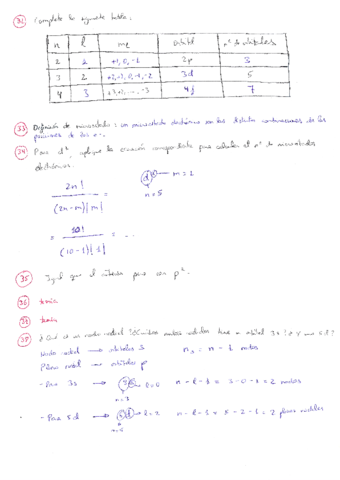 31) Complete la siguiente tabla:
n | l | ml | orbital | nº de orbitales
2 | 1 | +1, 0, -1 | 2p | 3
3 | 2 | +2, +1, 0, -1, -2 | 3d | 5
4 | 3 | +3, +2, ... -3 | 4f | 7
33) Definición de microestado: un microestado electrónico son las distintas combinaciones de las posiciones de los e-.
34) Para d¹, aplique la ecuación correspondiente para calcular el nº de microestados electrónicos.
2n! / (2n-m)! m! =
m = 1
n = 5
= 10! / (10-1)! 1! = ...
35) Igual que el anterior pero con p².
36) teoría
37) teoría
38) ¿Qué es un nodo nodal? ¿Cuántos nodos radiales tiene un orbital 3s? ¿Y uno 5d?
Nodo radial → orbitales s
n - 1 nodos
Plano nodal → orbitales p
- Para 3s → 3s → l=0
n=3
n - l - 1 = 3 - 0 - 1 = 2 nodos
- Para 5d → 5d → l=2
n=5
n - l - 1 = 5 - 2 - 1 = 2 planos nodales